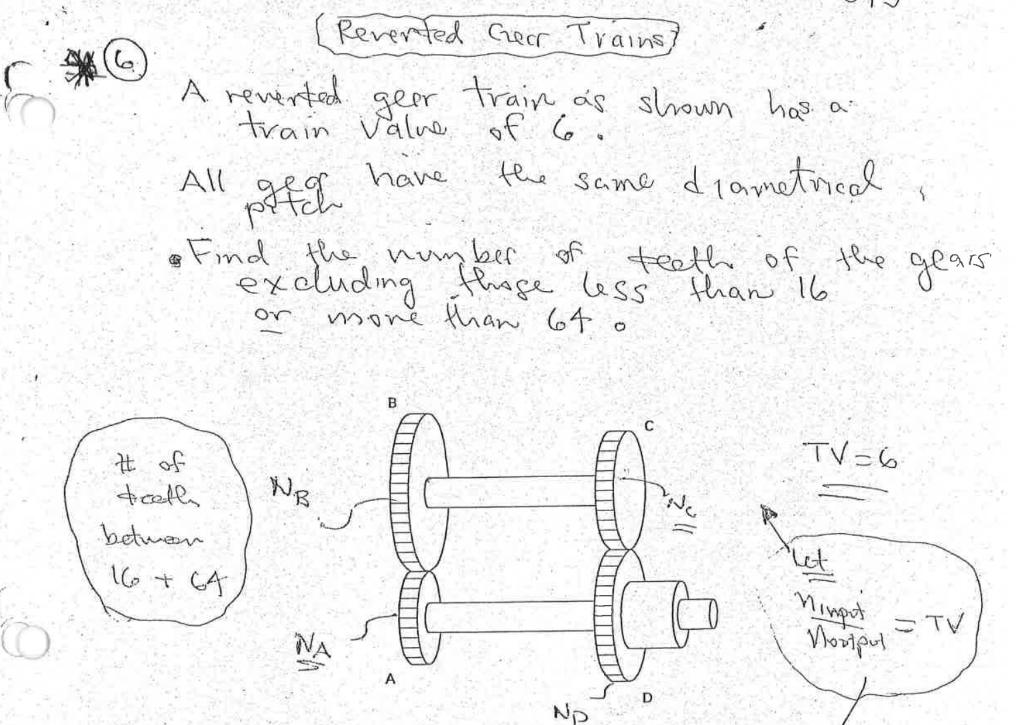 Reverted Gear Trains
6
A reverted geer train as shown has a
train value of 6.
All gear have the same diametrical
pitch
Find the number of teeth of the gears
excluding those less than 16
or more than 64.
B
C
# of
teeth
between
16 + 64
NB
NC
TV=6
Let
ninput
noutput = TV
NA
A
ND
D